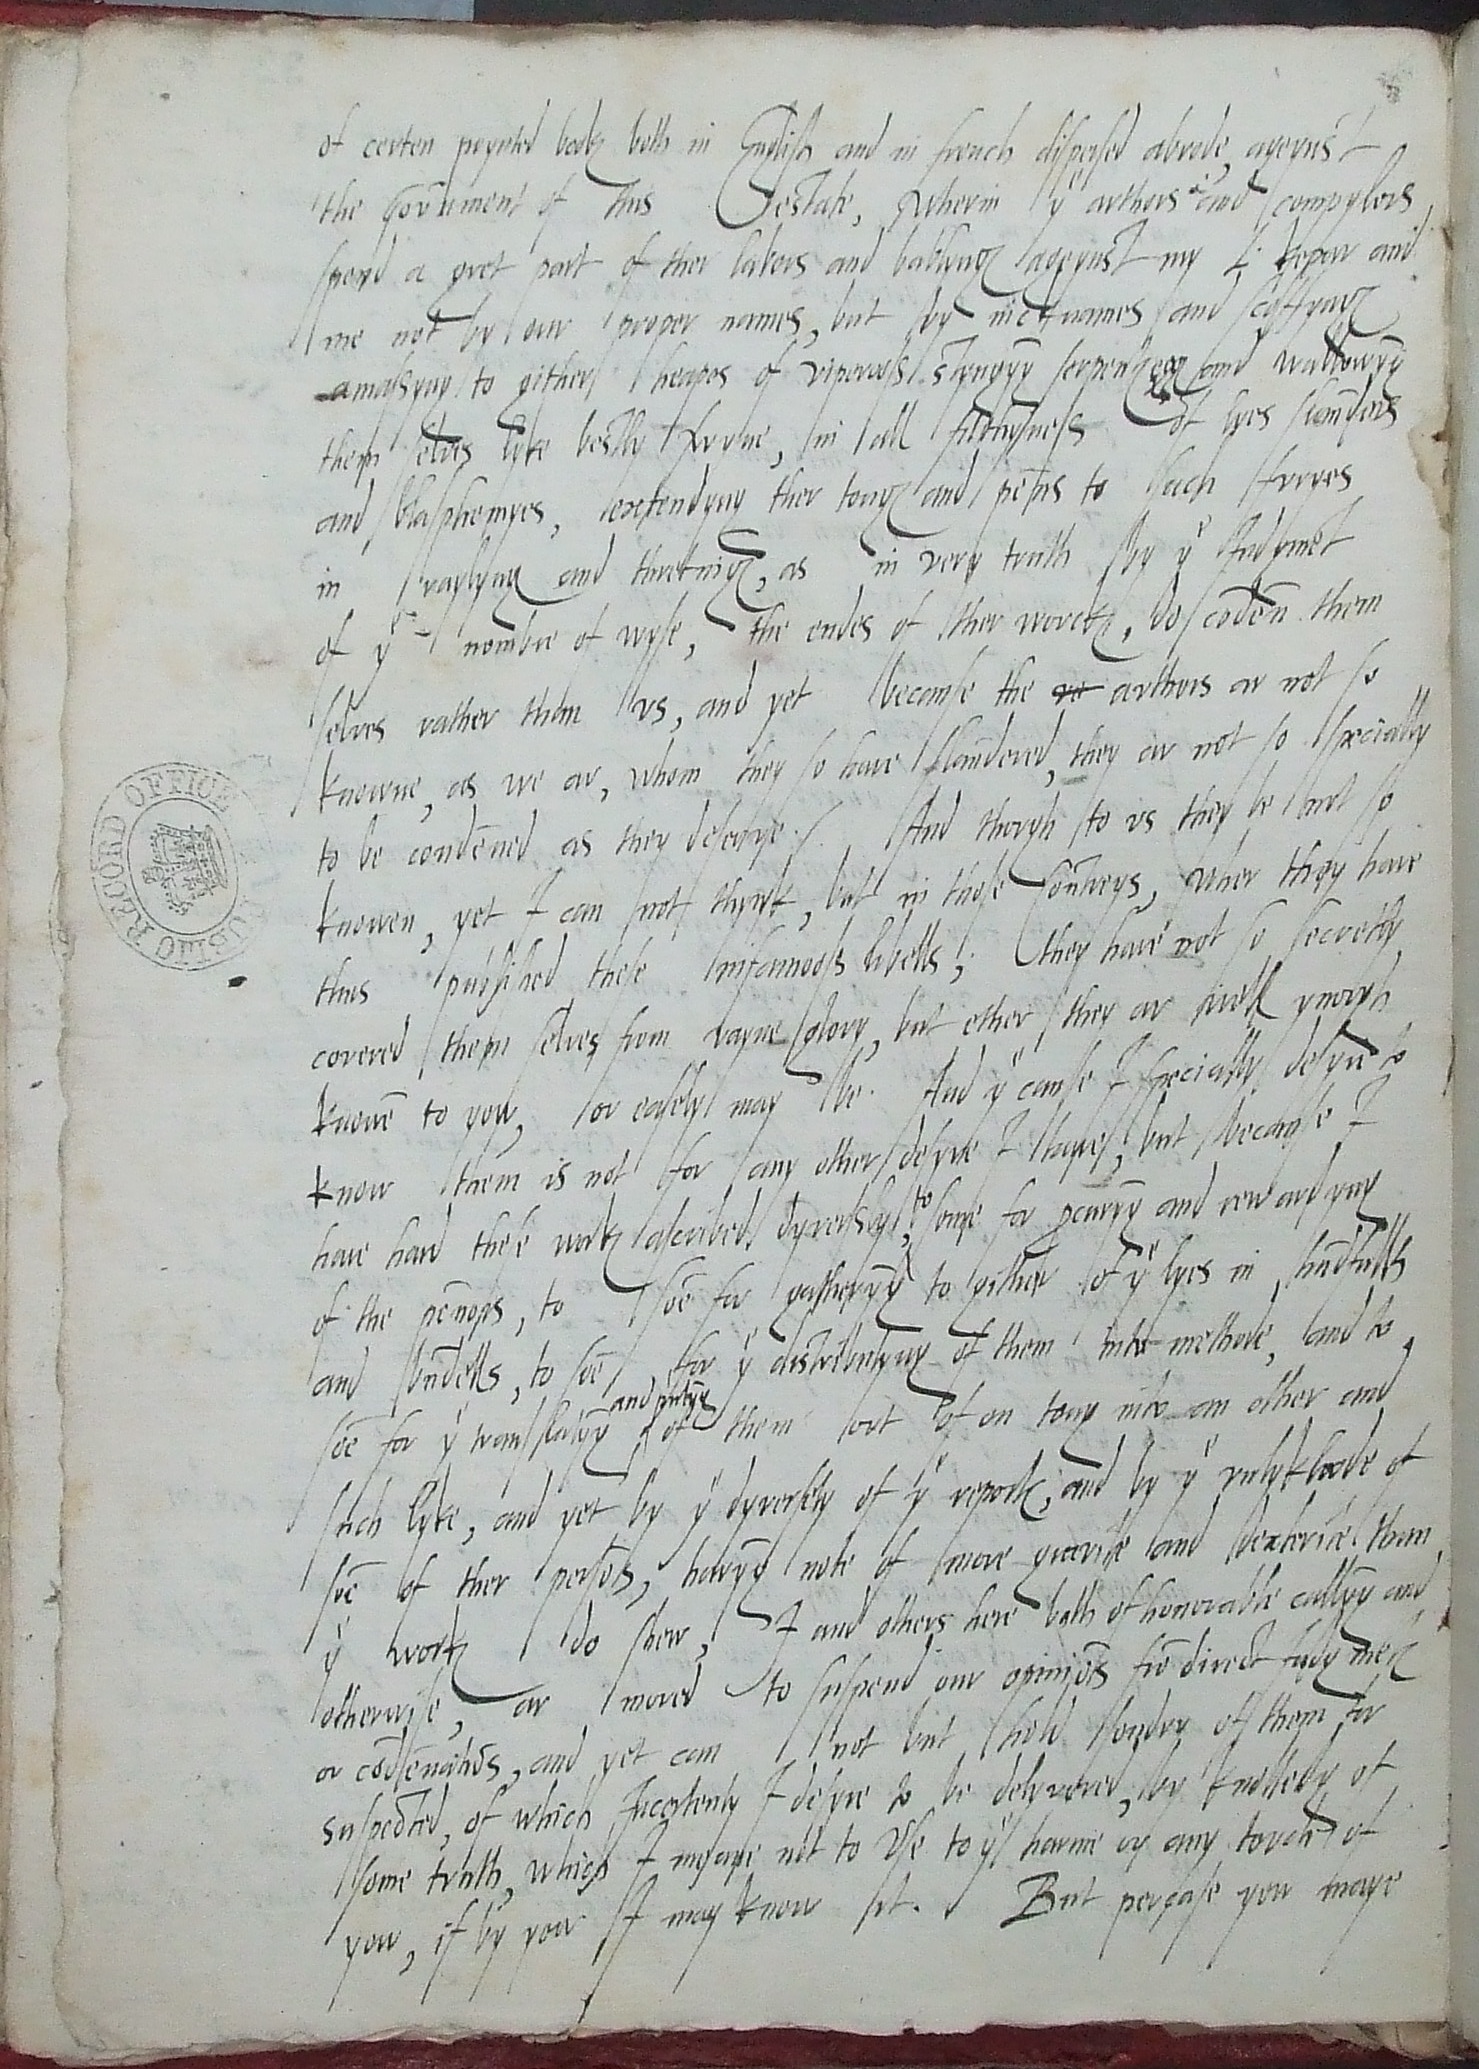 of certen prynted bookes both in English and in french dispersed abrode, ageynst
the gouernment of this Estate, wherin yͤ arthors and compylors
spend a gret part of ther labors and bablyngs ageynst my L. kepar and
me not by our proper names, but by nicknames and scoffyngs
amassyng to gither heapes of viperooss styngyng serpents and wallowyng
them selves lyke bestly swyne, in all filthyness of lyes slanders
and blasphemyes, extendyng ther tongs and penns to such furyes
in raylyngs and thretnigs, as in very truth by yͤ Judgmēt
of yͤ nombre of wyse, the endes of ther workes, do cōdēn them
selves rather than vs, and yet because the arthors ar not so
knowne, as we ar, whom they so have slandered, they ar not so specially
to be condēned as they deserve. / And thorgh to vs they be not so
knowen, yet I can not thynk, but in those contreys, wher they have
thus published these infamooss libells, they have not so secretly
covered them selves from vayne glory, but ether they ar well ynough
knowē to yow, or easely may be. And yͤ cause I specially desyre to
know them is not for any other desyre I have, but because I
have hard these works ascribed dyversly, to some for gevyng and rewardyng
of the pēnors, to soē for gatheryng to gither of yͤ lyes in hādfulls
and būdells, to soē for yͤ distributyng of them into methode, and to
soē for yͤ translatyng and prītyng of them out of on tong into an other and
such lyke, and yet by yͤ dyversity of yͤ reports, and by yͤ lode of
soē of ther persōs, havyng note of more gravite and dexterite than
yͤ works do shew, I and others here both of honorable callyng and
otherwise, ar moved to suspend our opiniōs frō direct Judgmēts
or cōdēnatiōs, and yet can not but hold sondry of them for
suspected, of which Incertenty I desyre to be delyvered, by knolledg of
some truth, which I meane not to vse to yͤ harme or any touch of
yow, if by yow I may know it. But percase yow maye
PUBLIC RECORD OFFICE